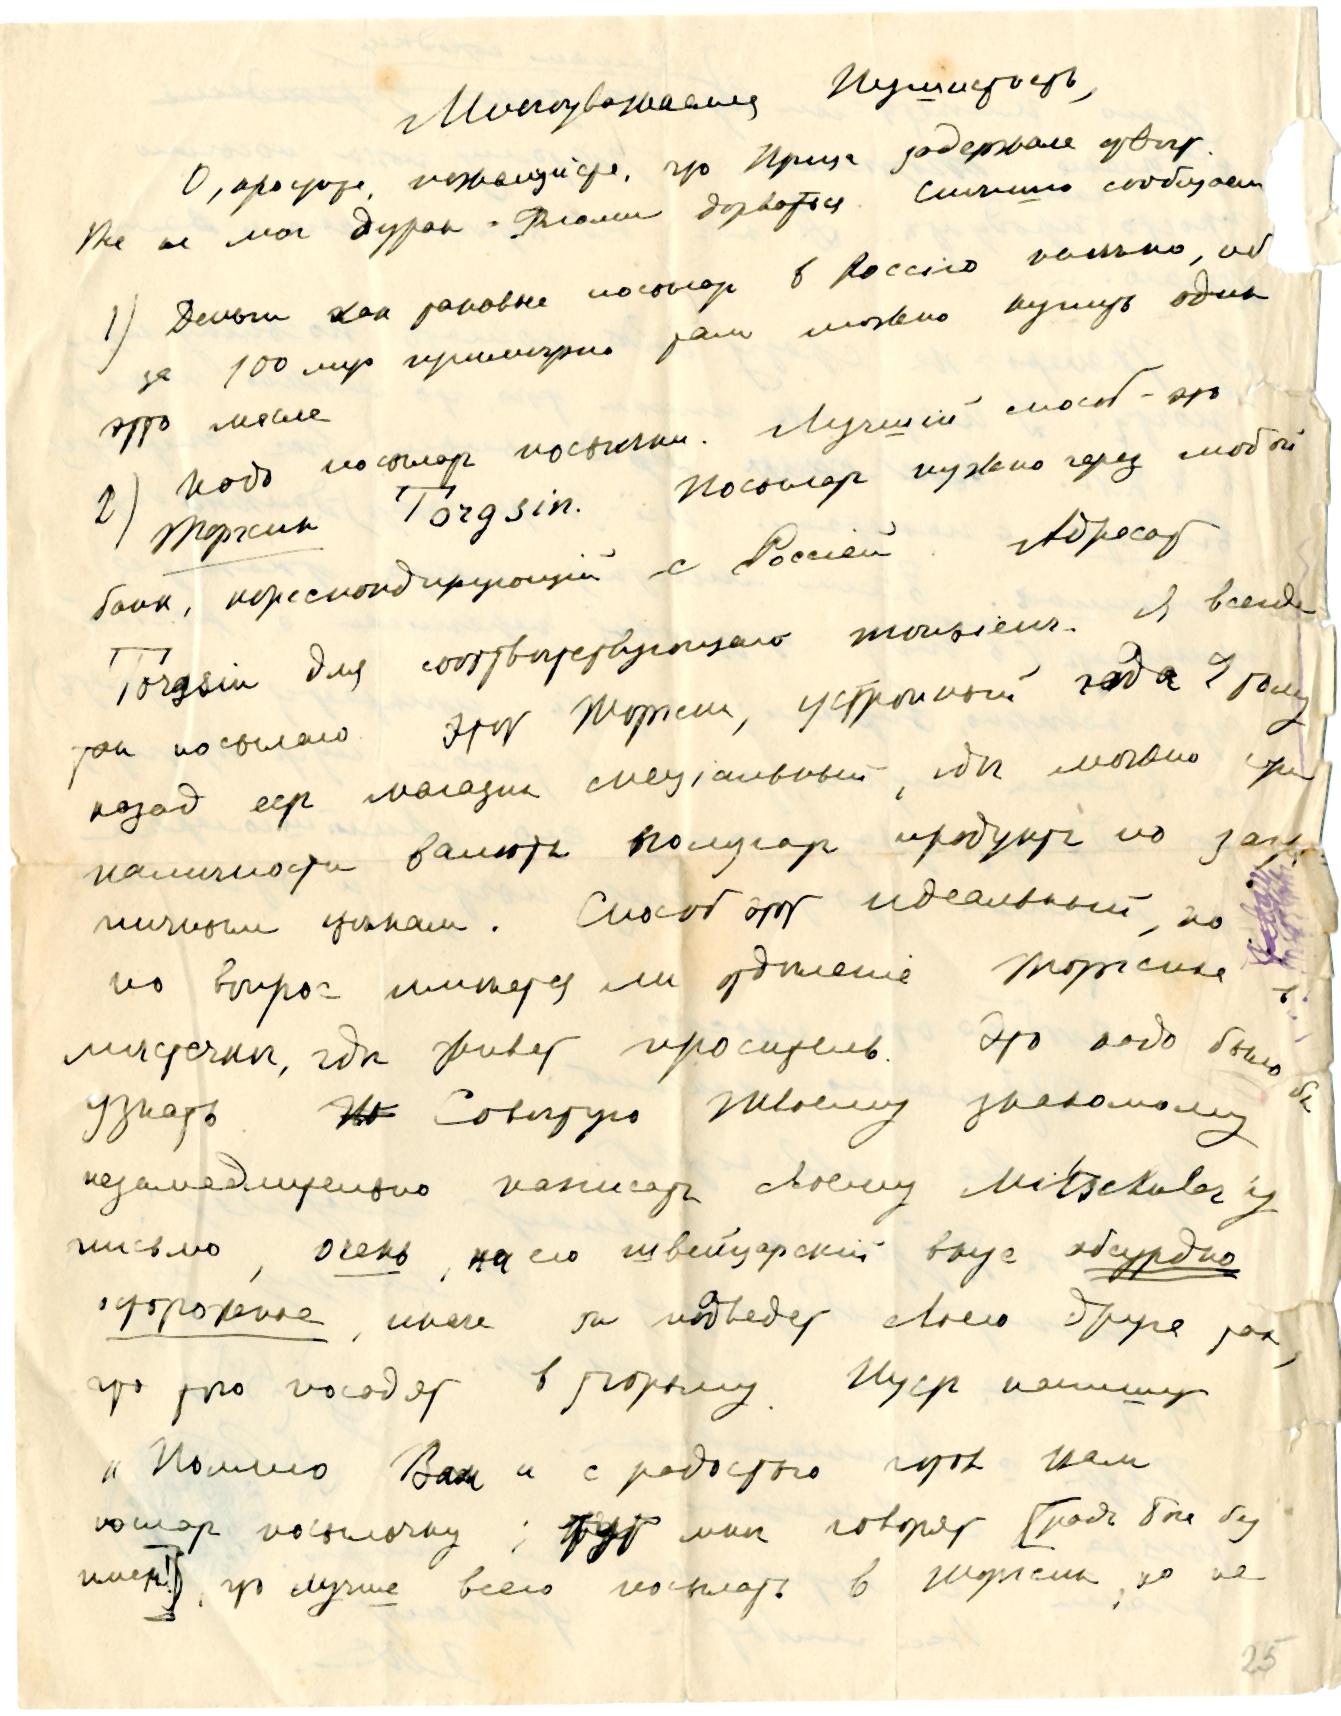 Многоуважаемая Пушистость,
О, простите, пожалуйста, что Ирица задержала отвѣт.
Не мог дурак дорваться. Спѣшно сообщаем
1) Деньги как таковые посылать в Россію нельзя, ибо
за 100 мар примѣрно там можно купить один
это масла
2) Надо посылать посылки. Лучшій способ - это
Торгсин Torgsin. Посылать нужно через любой
банк, кореспондирующій с Россіей. Адресат
Torgsin для соотвѣтствующаго мѣстечка. Я всегда
так посылаю. Этот Торгсин, устроенный года 2 тому
назад есть магазин спеціальный, гдѣ можно при
наличности валюты получать продукты по загра
ничным цѣнам. Способ этот идеальный, но
но вопрос имѣется ли отдѣленіе Торгсина в
мѣстечкѣ, гдѣ живет проситель. Это надо было бы
узнать. Совѣтую Твоему знакомому
незамедлительно написать своему Mitschüler'у
письмо, очень, на его швейцарскій вкус абсурдно
осторожное, иначе он подведет своего друга так,
что того посадят в тюрьму. Пусть напишет
"Помню Вас и с радостью готов Вам
послать посылочку; тут мнѣ говорят [
имен!], что лучше всего посылать в Торгсин, но не
25